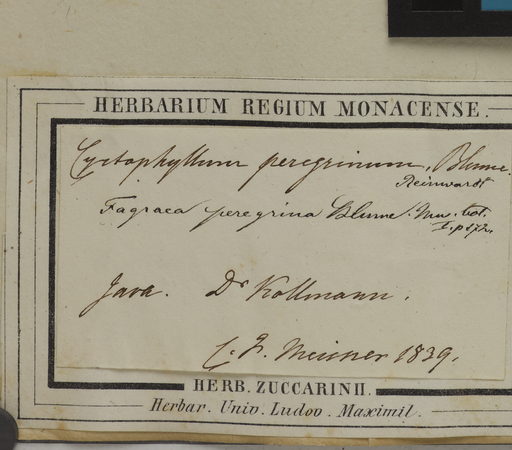 HERBARIUM REGIUM MONACENSE.
Cyrtophyllum peregrinum, Blume.
Reinwardt
Fagraea peregrina Blume. Mus. bot.
I. p 172.
Java. Dr Kollmann.
C. F. Meisner 1839.
HERB. ZUCCARINII.
Herbar. Univ. Ludov. Maximil.